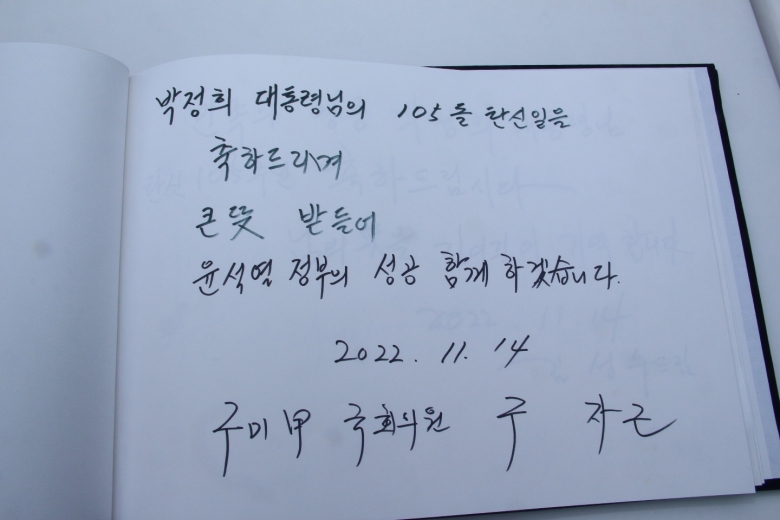 박정희 대통령님의 105돌 탄신일을
축하드리며
큰뜻 받들어
윤석열 정부의 성공 함께 하겠습니다.
2022. 11. 14
구미甲 국회의원 구 자근